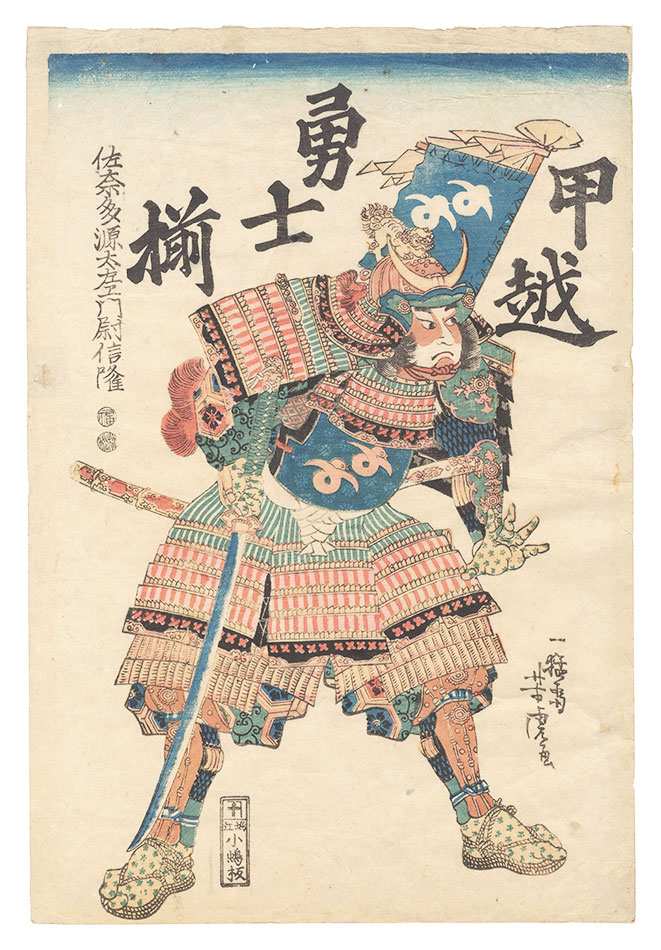 甲越
勇士
揃
佐奈多源太左エ門尉信隆
一猛斎芳虎画
堀江
小嶋板